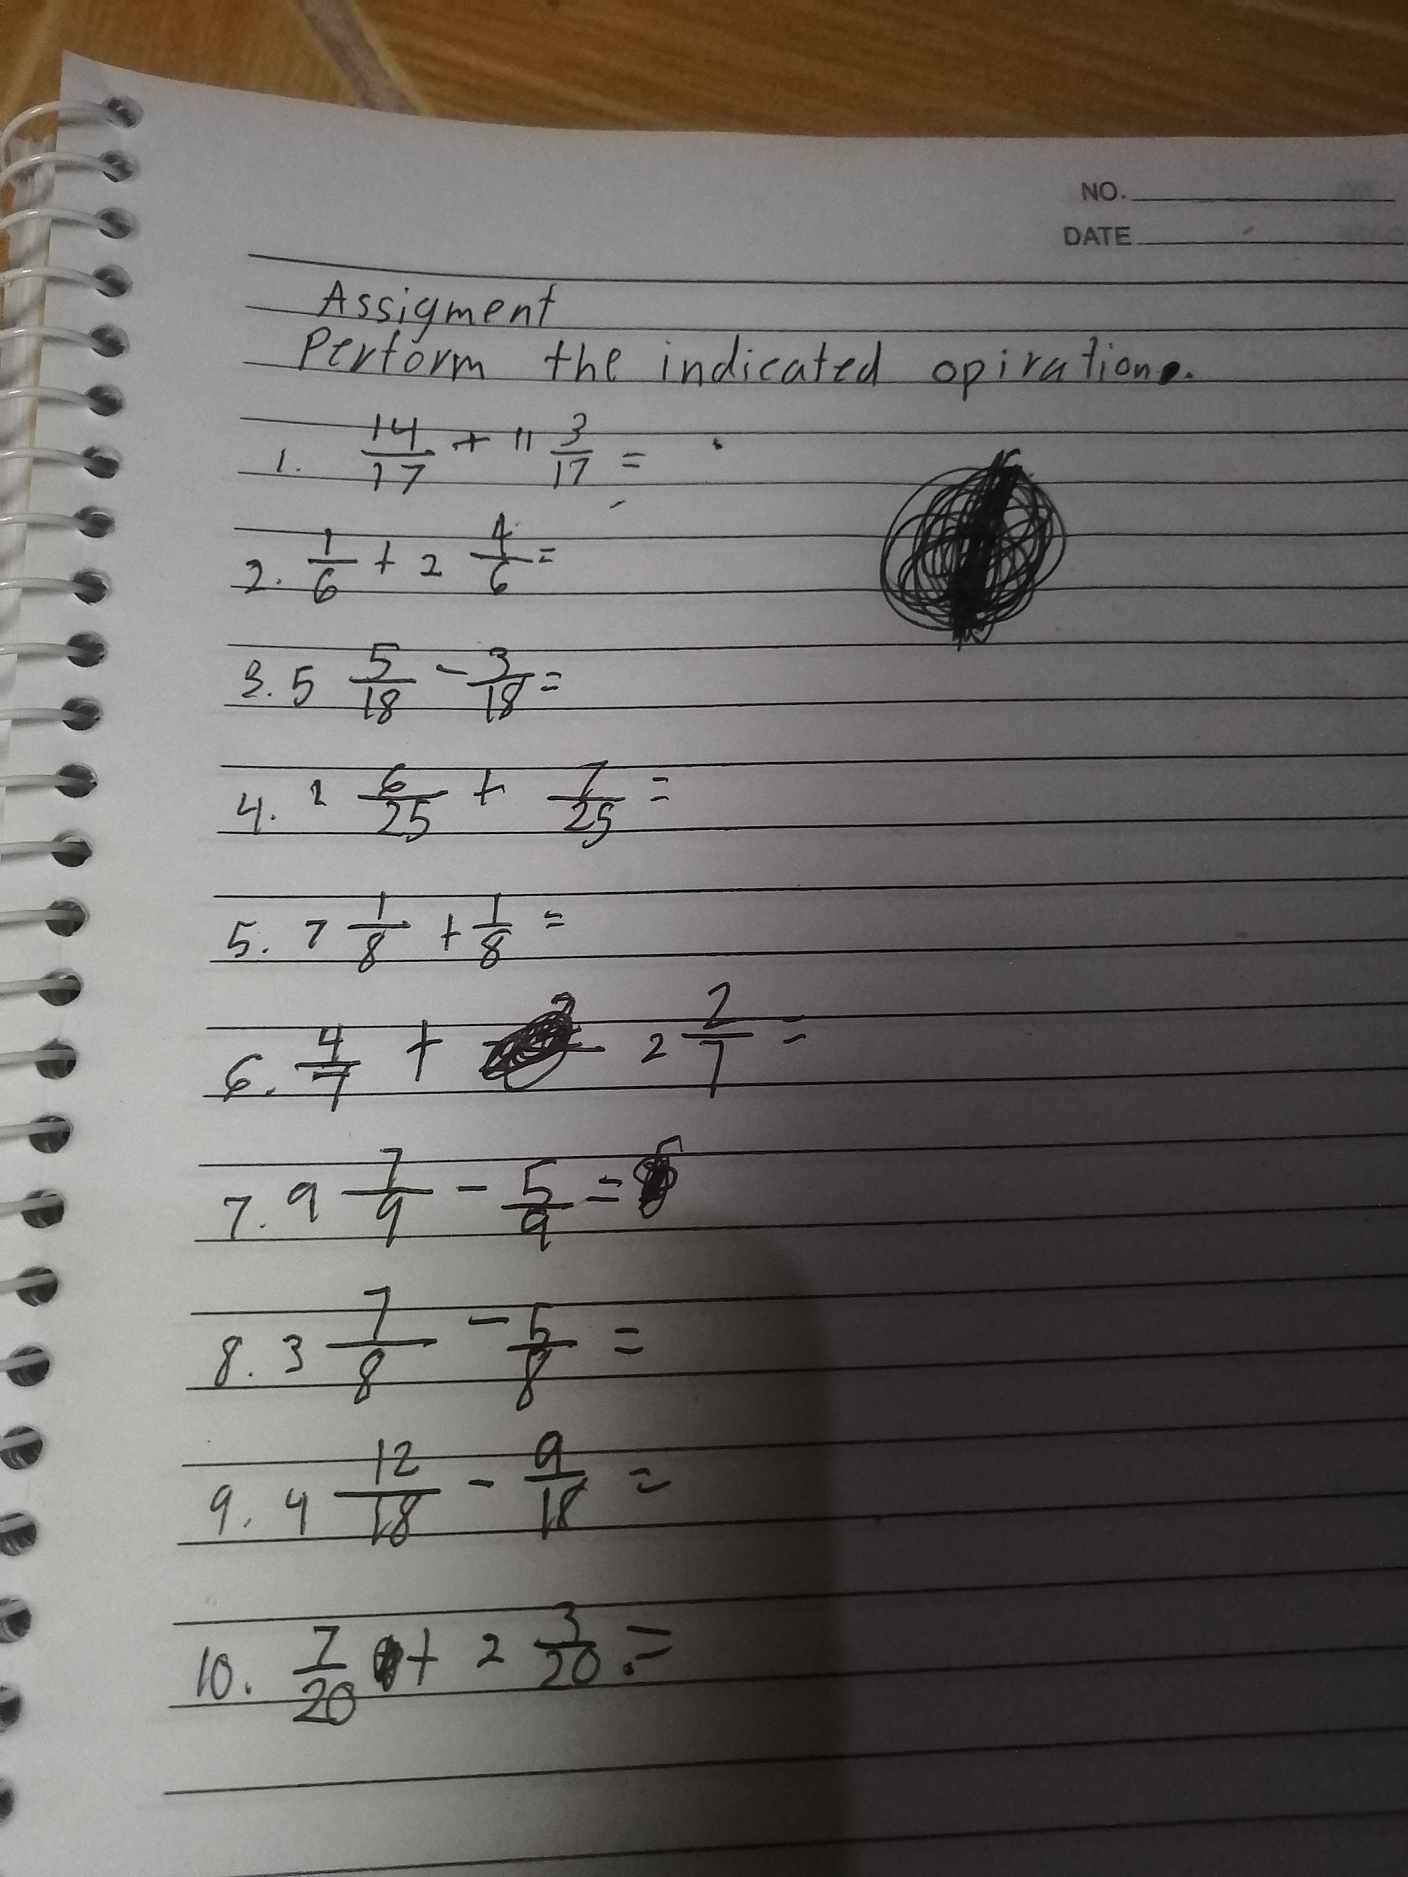 NO.
DATE
Assigment
Perform the indicated opiration.
1. 14/17 + 11 3/17 =
2. 1/6 + 2 4/6 =
3. 5 5/18 - 3/18 =
4. 2 6/25 + 7/25 =
5. 7 1/8 + 1/8 =
6. 4/7 + 2 2/7 =
7. 9 7/9 - 5/9 =
8. 3 7/8 - 5/8 =
9. 4 12/18 - 9/18 =
10. 7/20 + 2 3/20 =